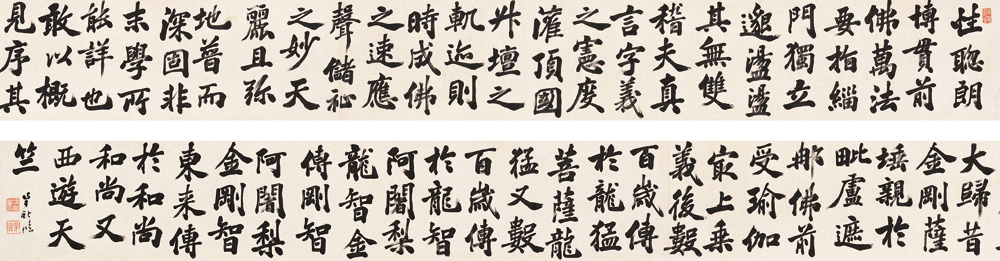 性聰朗
博貫前
佛萬法
要指緇
門獨立
邈盪盪
其無雙
稽夫真
言字義
之憲度
灌頂國
升壇之
軌迹則
時成佛
之速應
聲儲祉
之妙天
麗且弥
地普而
深固非
末學所
能詳也
敢以概
見序其
大歸昔
金剛薩
埵親於
毗盧遮
那佛前
受瑜伽
最上乘
義後數
百歲傳
於龍猛
菩薩龍
猛又數
百歲傳
於龍智
阿闍梨
龍智金
傳剛智
阿闍梨
金剛智
東来傳
於和尚
和尚又
西遊天
竺